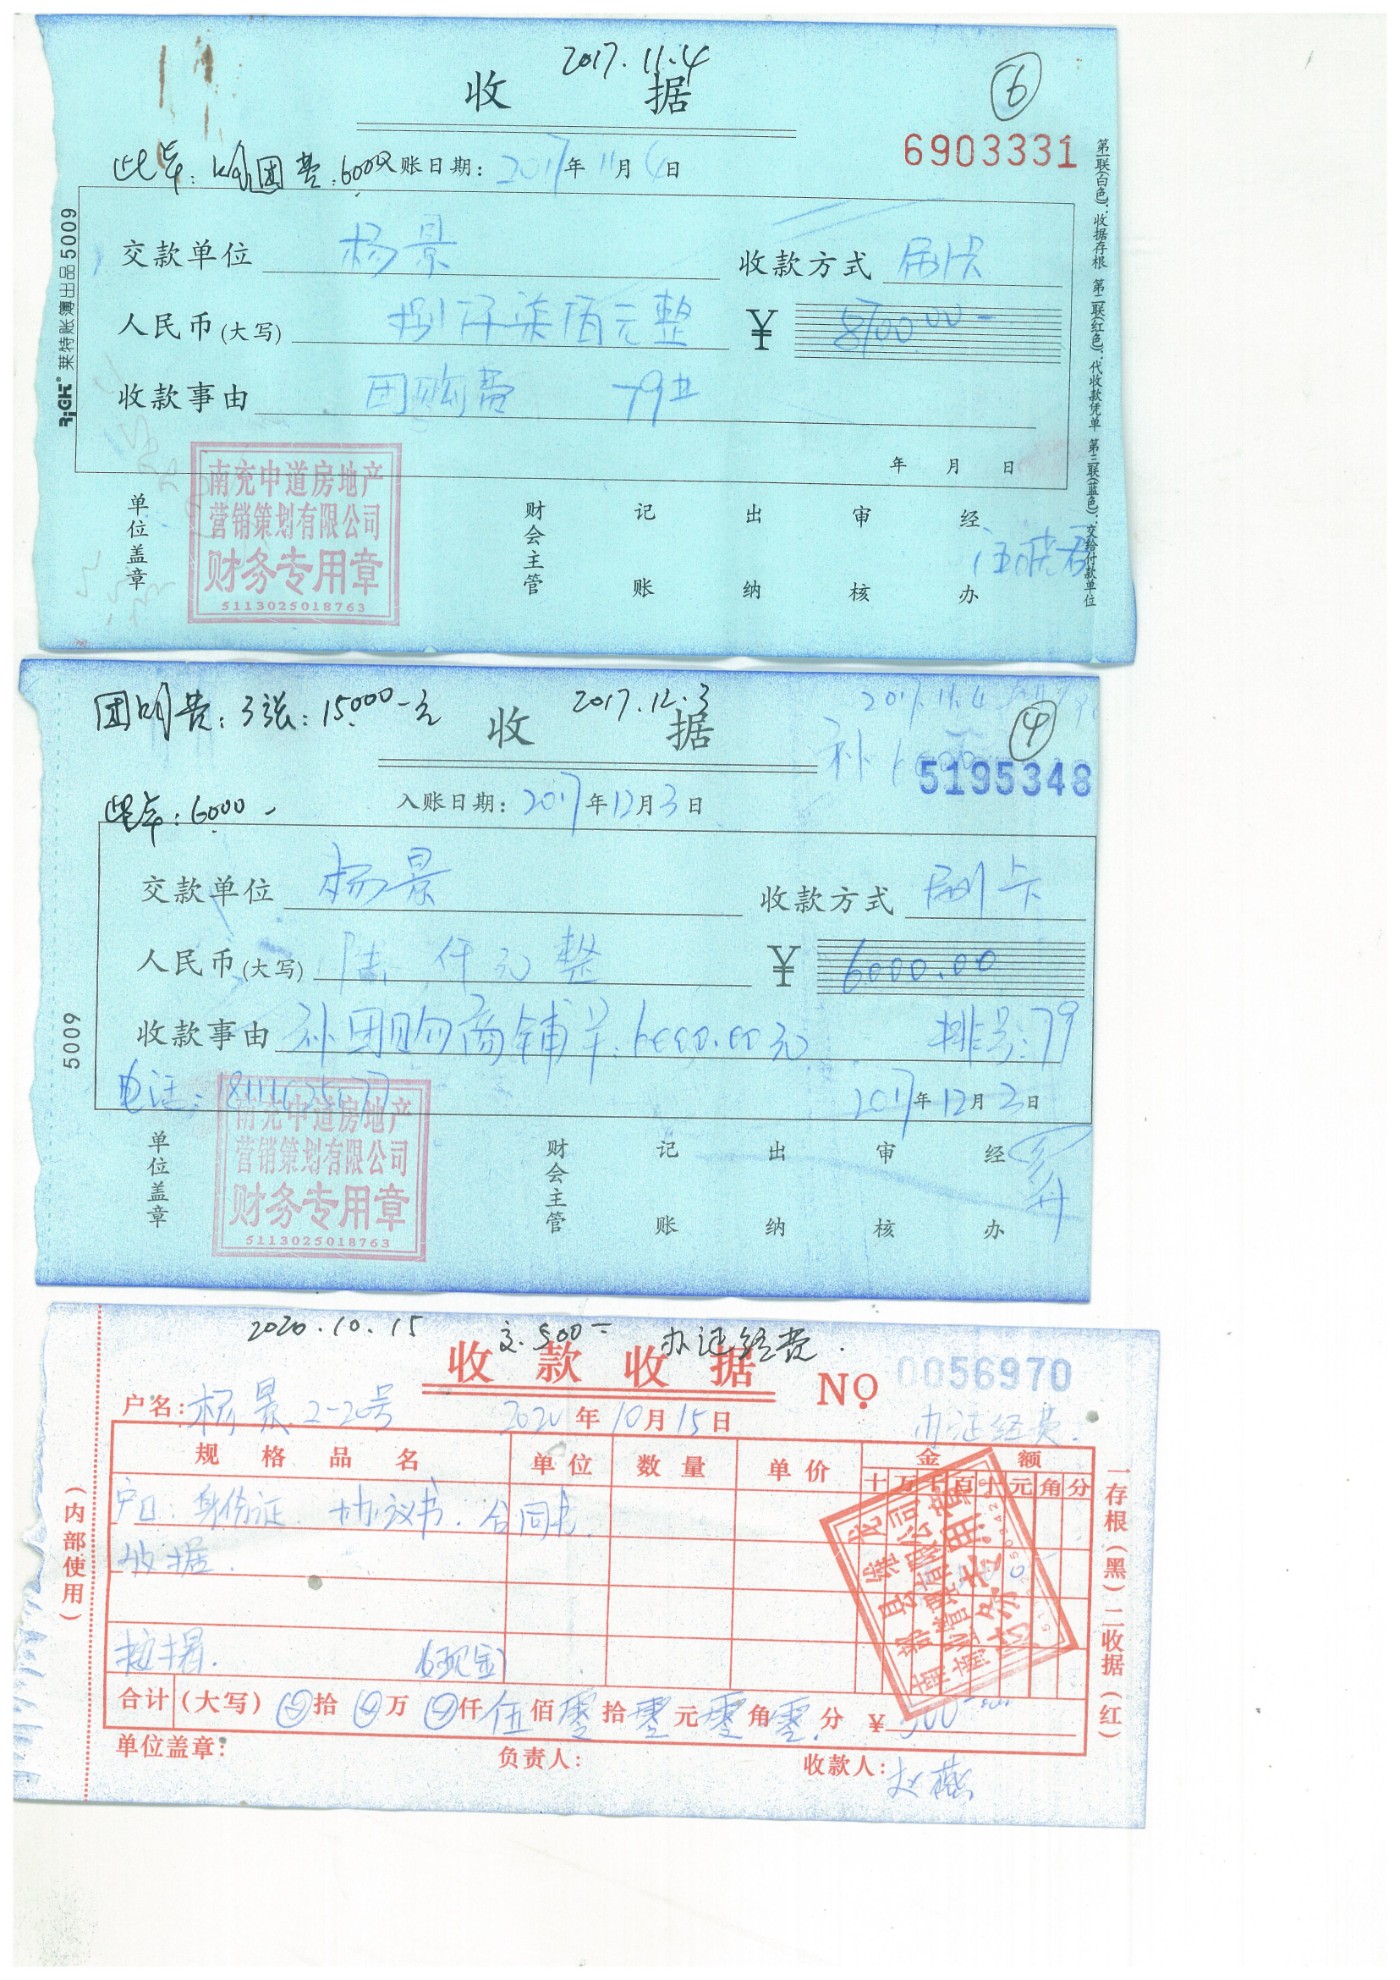 2017.11.4
收 据
⑥
6903331
入账日期：2017年11月4日
交款单位 杨景 收款方式 刷卡
人民币(大写) 捌仟柒佰元整 ¥ 8700.00
收款事由 团购费 79#
年 月 日
单位盖章 财会主管 记账 出纳 审核 经办
南充中道房地产
营销策划有限公司
财务专用章
5113025018763
RiGHT 莱特账簿出品 5009
第一联(白色)：收据存根 第二联(红色)：代收款凭单 第三联(蓝色)：交给付款单位
团购费：3张：15000-元
2017.12.3
2017.11.4
收 据
④
5195348
此单：6000-
入账日期：2017年12月3日
交款单位 杨景 收款方式 刷卡
人民币(大写) 陆仟元整 ¥ 6000.00
收款事由 补团购商铺 6000.00元 排号：79
电话：
2017年12月3日
单位盖章 财会主管 记账 出纳 审核 经办
南充中道房地产
营销策划有限公司
财务专用章
5113025018763
5009
2020.10.15 交500- 办证经费.
收款收据 NO 0056970
户名：杨景 2-20号 2020年10月15日 办证经费.
规格品名 单位 数量 单价 金额
十 万 千 百 十 元 角 分
户口. 身份证. 协议书. 合同书.
收据.
(现金)
合计 (大写) 拾 万 仟 伍 佰 零 拾 零 元 零 角 零 分 ¥ 500
单位盖章： 负责人： 收款人：赵燕
(内部使用)
一存根(黑) 二收据(红)
财务专用章